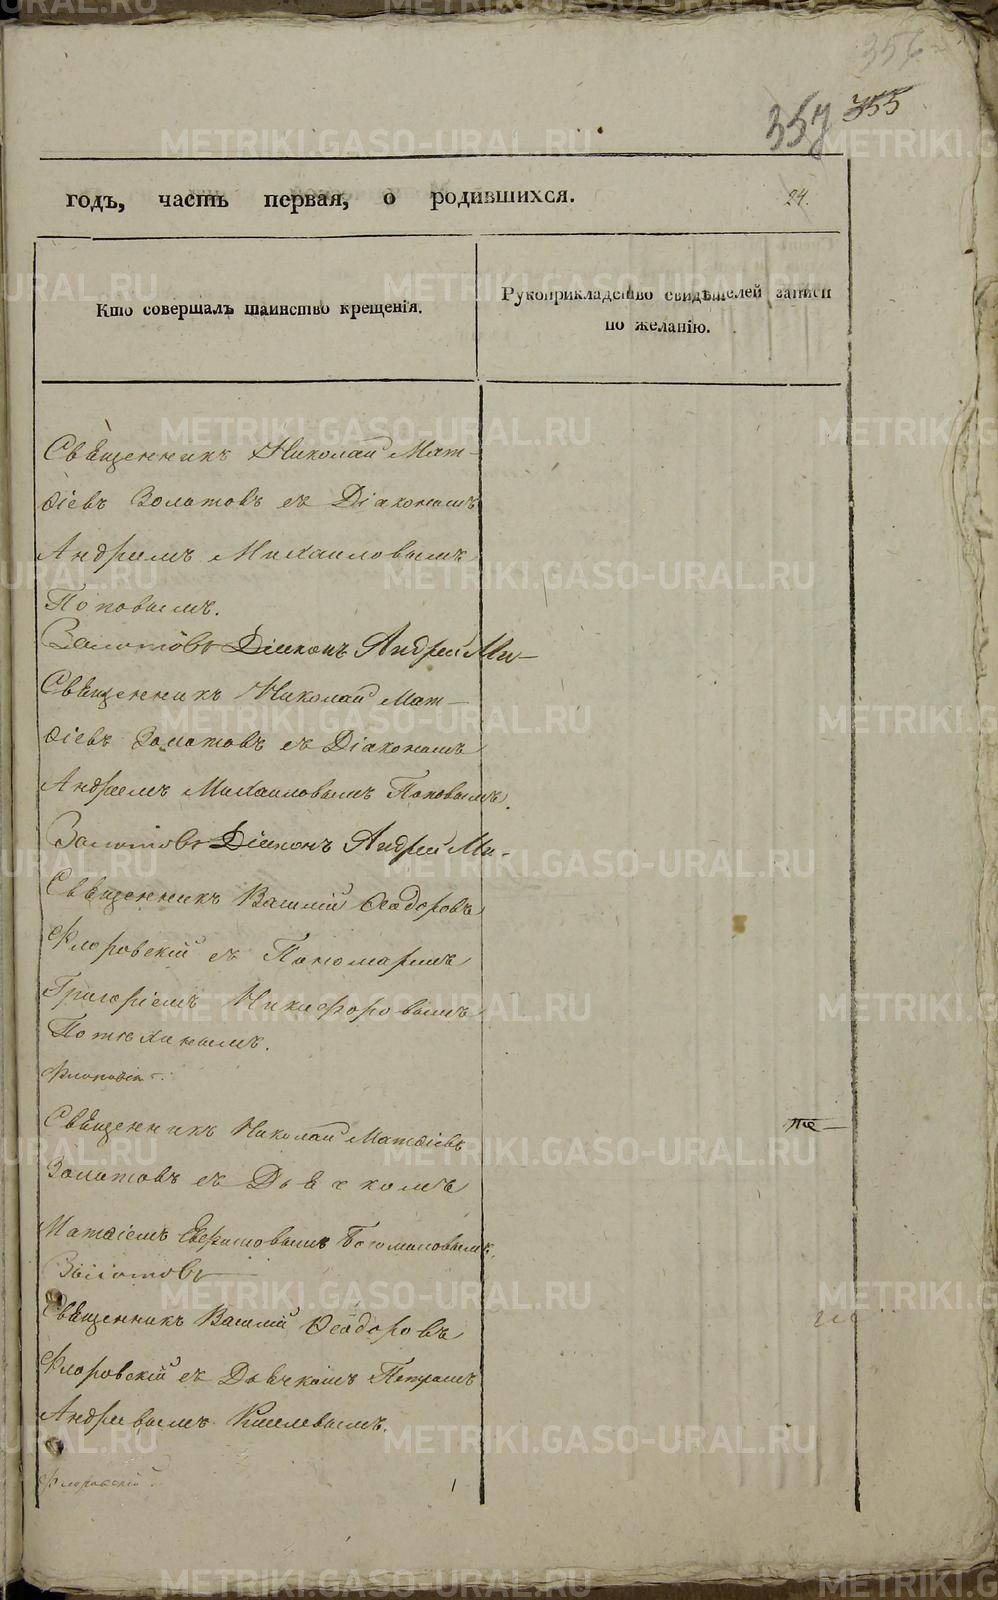 356
357 355
годъ, часть первая, о родившихся. 24.
Кто совершалъ таинство крещенія.
Рукоприкладство свидѣтелей записи
по желанію.
Священникъ Николай Мат-
ѳіевъ Золотовъ съ Діакономъ
Андреемъ Михаиловымъ
Поповымъ.
Золотовъ Діаконъ Андрей Ми-
Священникъ Николай Мат-
ѳіевъ Золотовъ съ Діакономъ
Андреемъ Михаиловымъ Поповымъ.
Золотовъ Діаконъ Андрей Ми-
Священникъ Василій Ѳеодоровъ
Флоровскій съ Пономаремъ
Григоріемъ Никифоровымъ
Потѣхинымъ.
Священникъ Николай Матѳіевъ
Золотовъ съ Дьячкомъ
Матѳіемъ
Золотовъ
Священникъ Василій Ѳеодоровъ
Флоровскій съ Дьячкомъ Петромъ
Андреевымъ Киселевымъ.
Флоровскій
METRIKI.GASO-URAL.RU